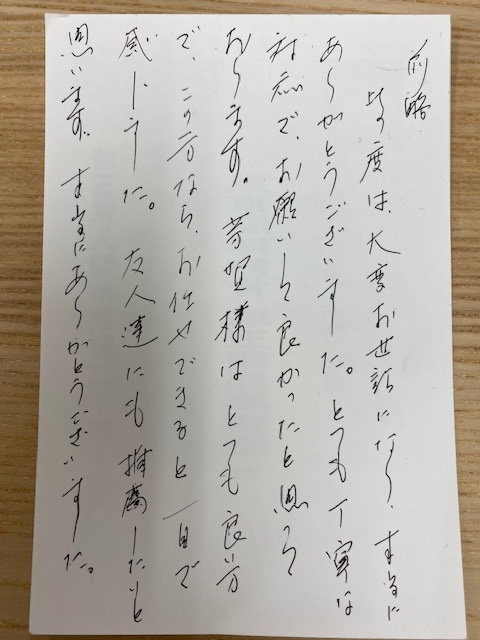 前略
此の度は、大変お世話になり、本当に
ありがとうございました。とても丁寧な
対応で、お願いして良かったと思って
おります。芳賀様はとても良い方
で、この方なら、お任せできると一目で
感じました。友人達にも推薦したいと
思います。本当にありがとうございました。